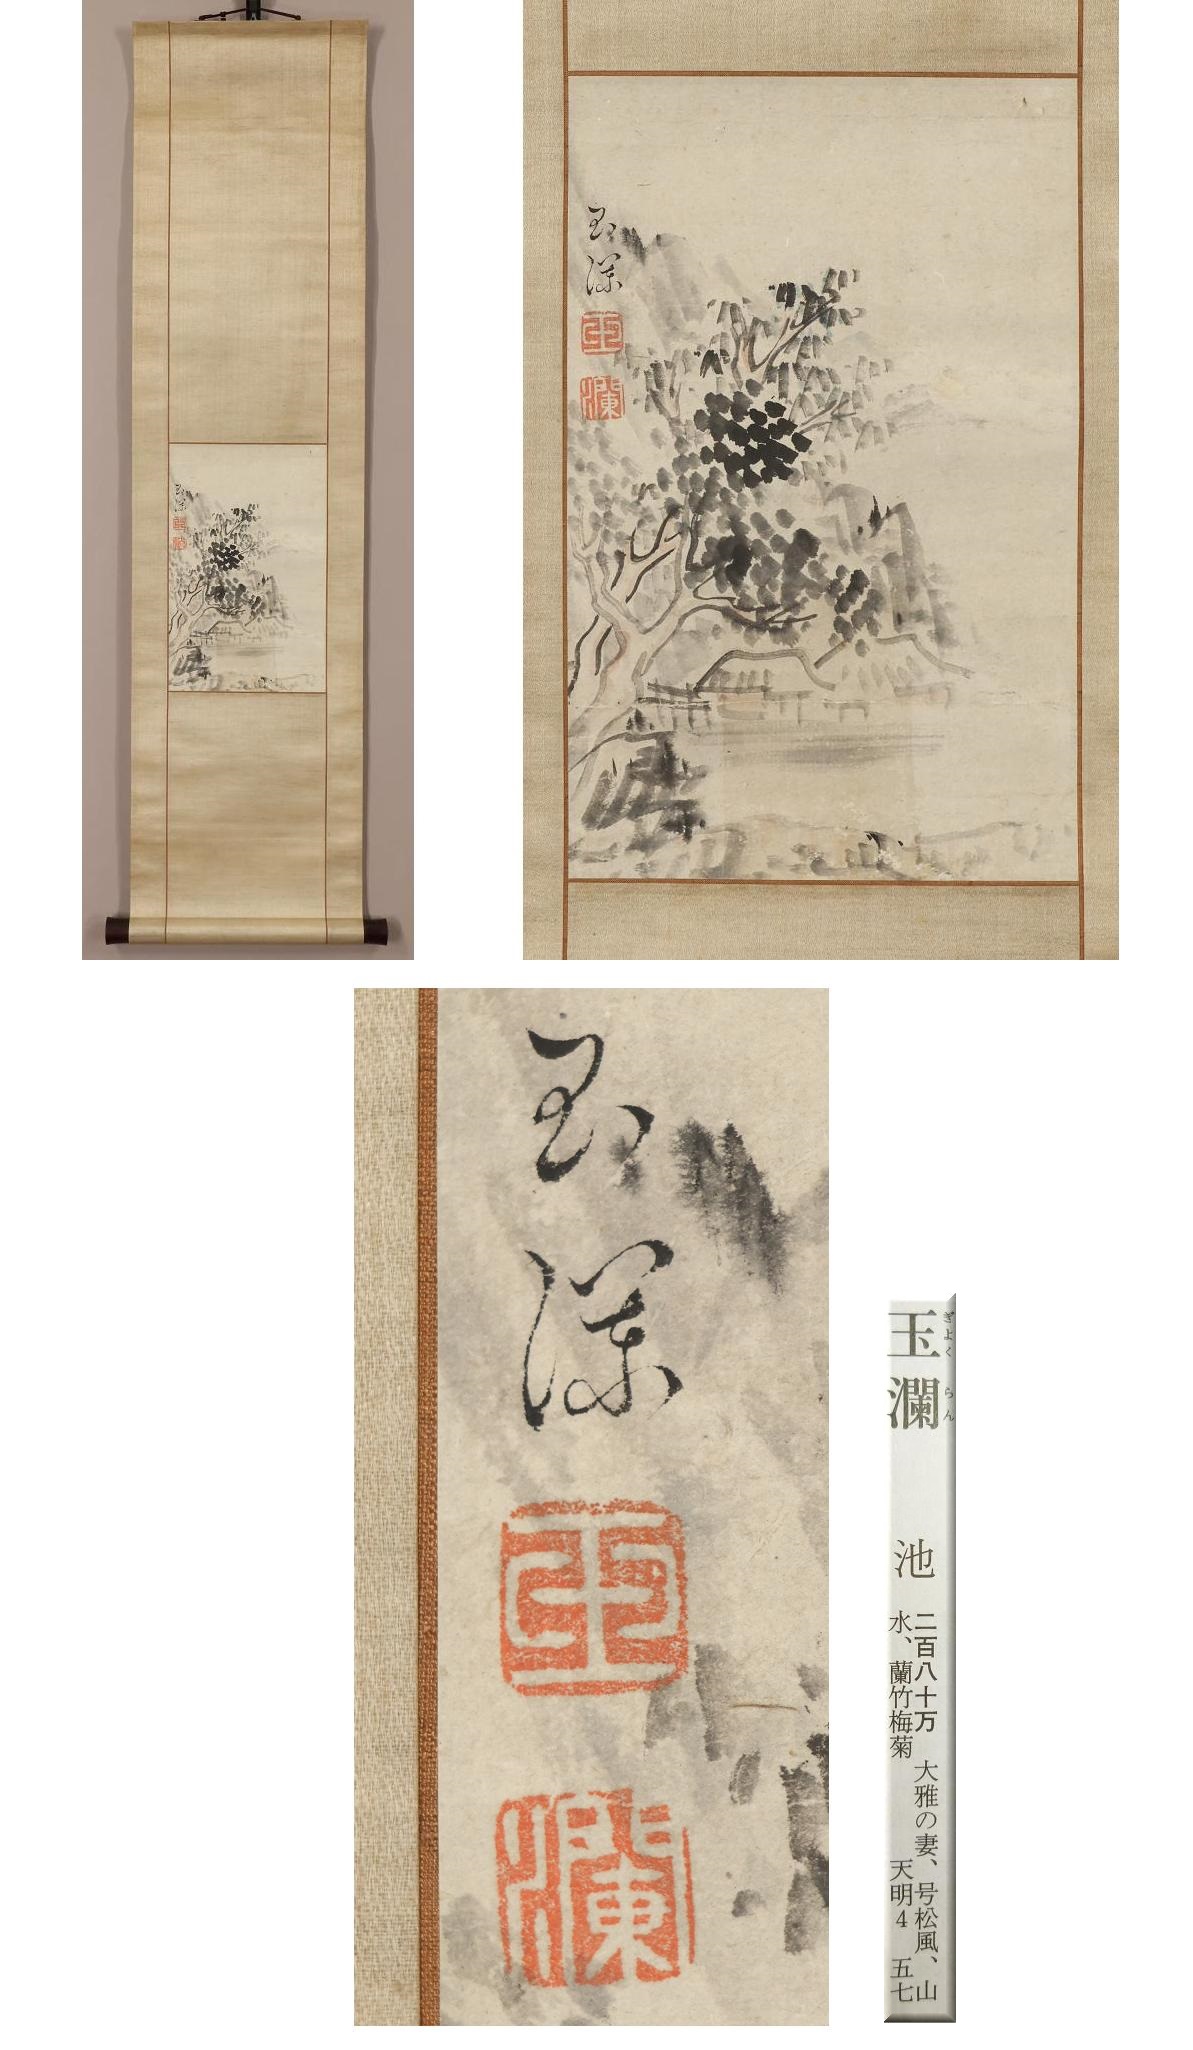 玉
瀾
玉
瀾
玉
瀾
玉
瀾
玉瀾
ぎよくらん
池
二百八十万 大雅の妻、号松風、山
水、蘭竹梅菊 天明4 五七